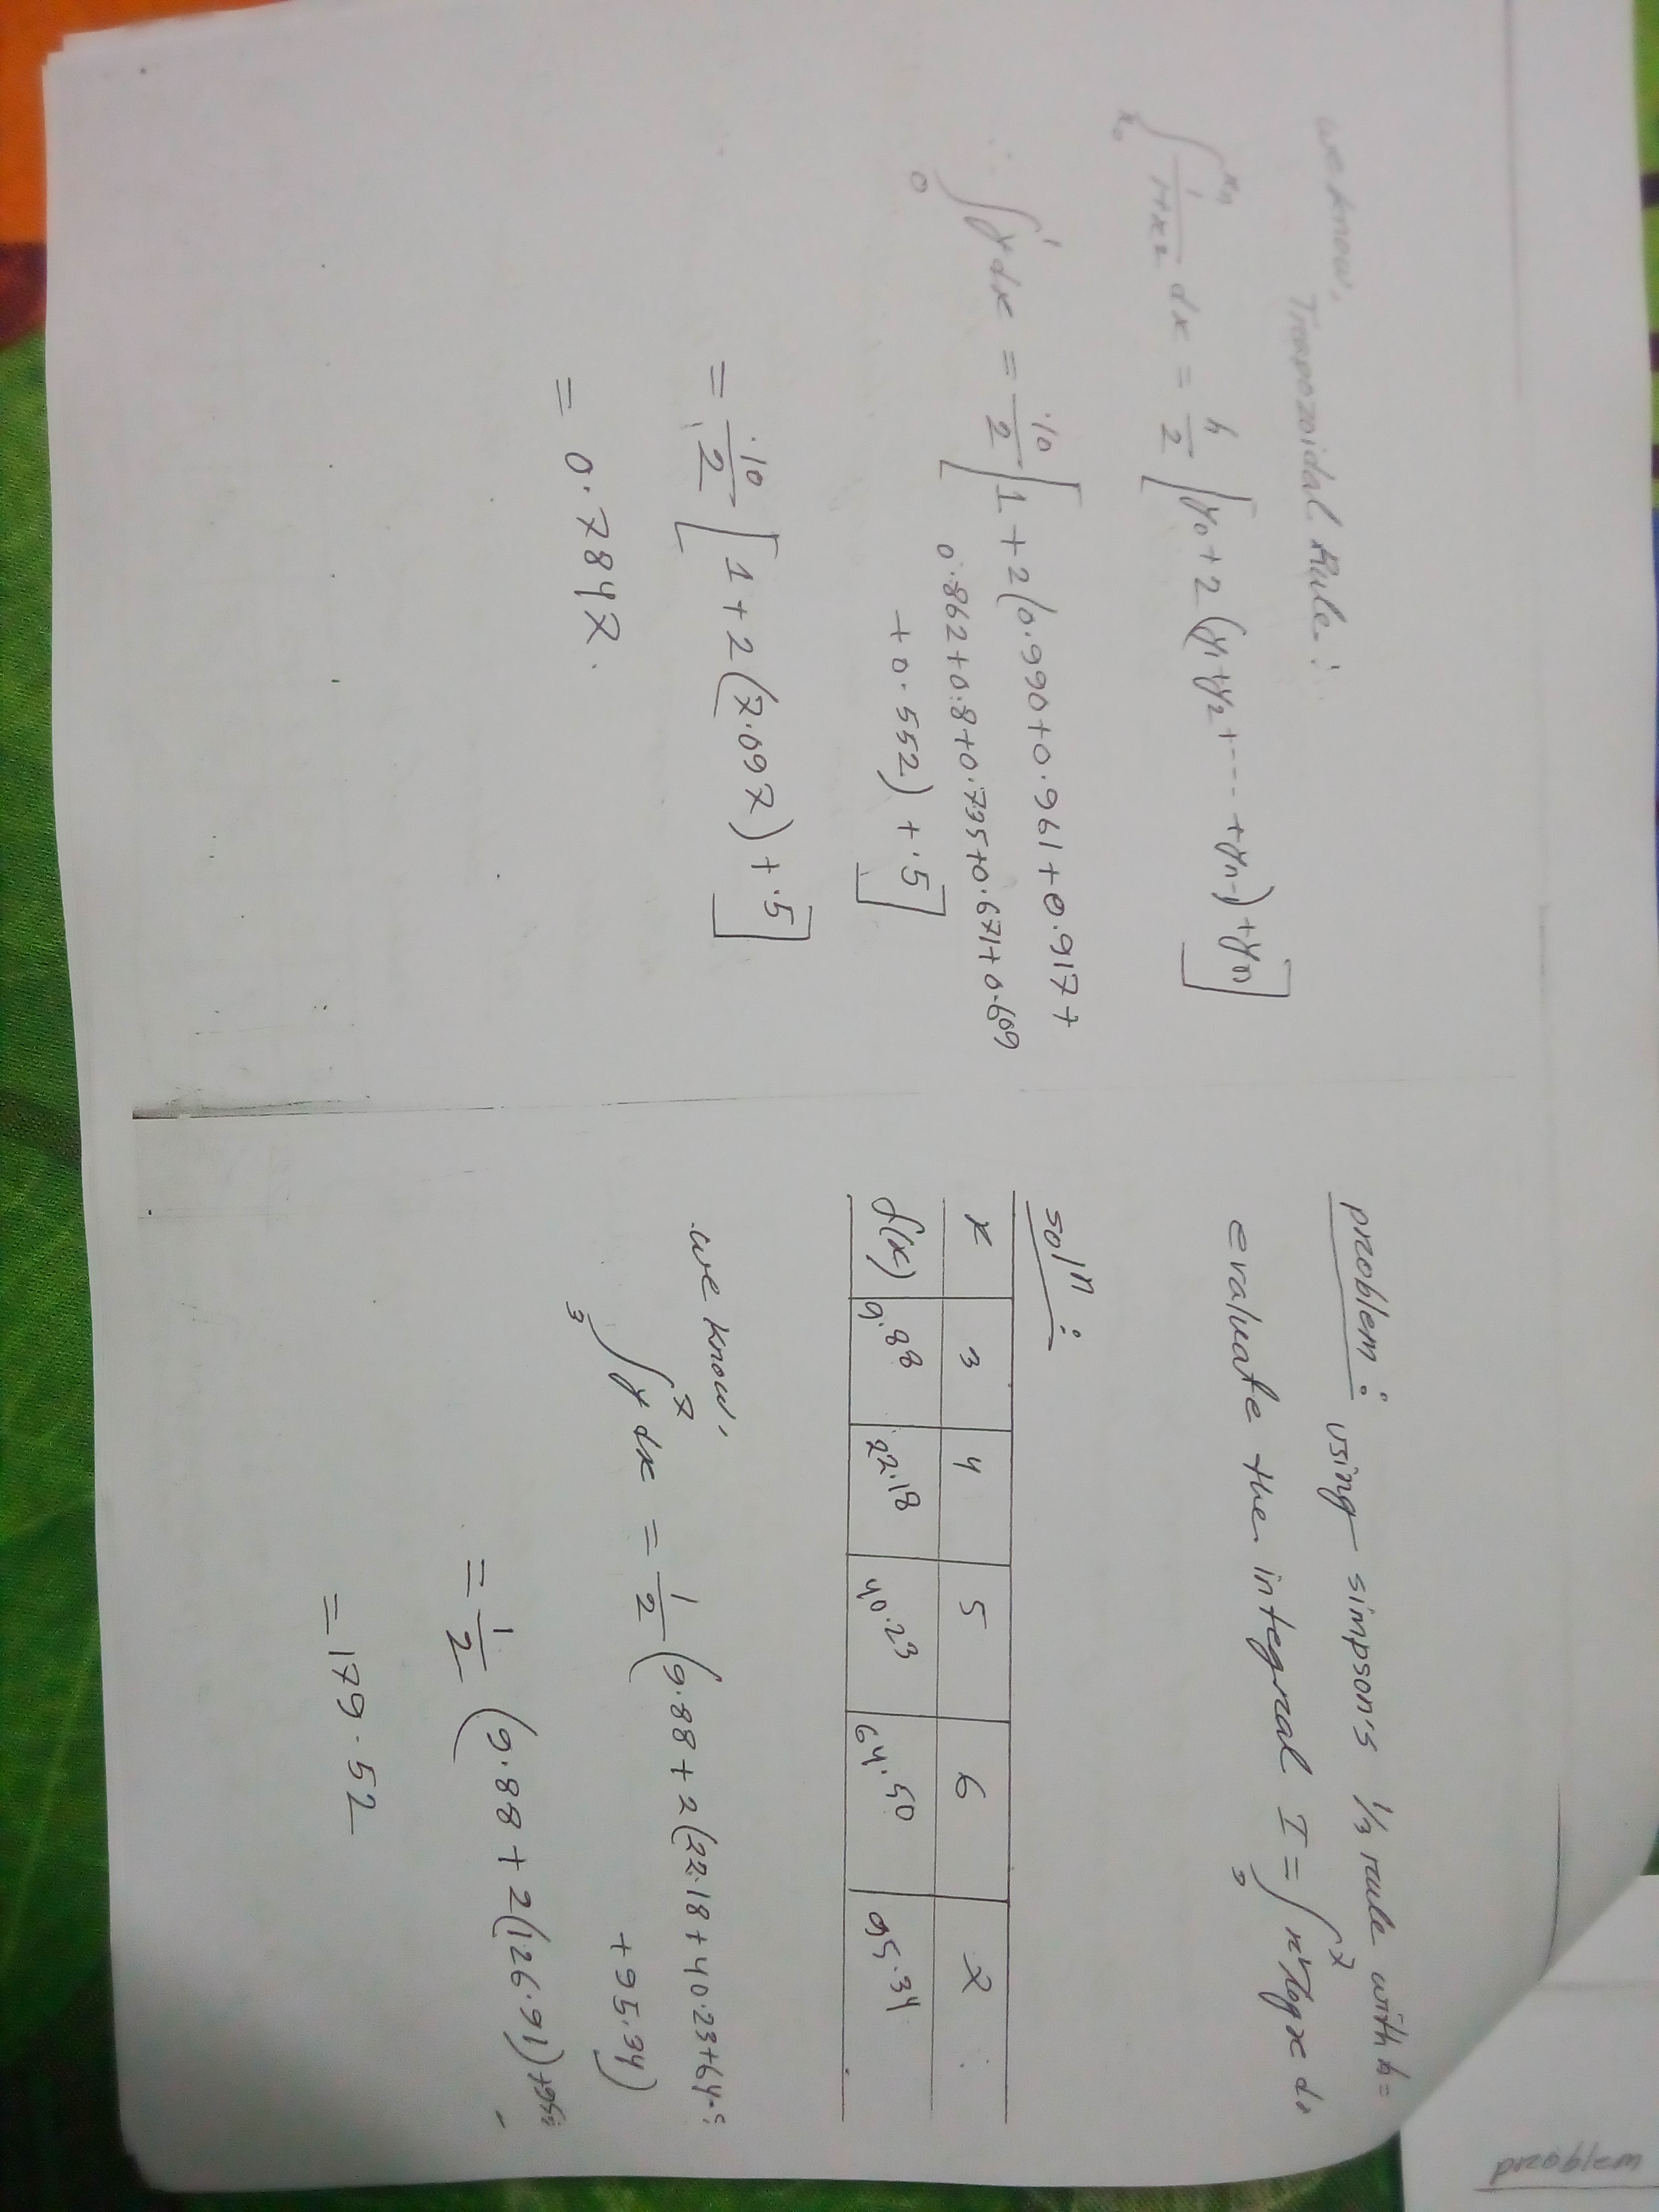 we know,
Trapozoidal Rule:
∫_{x₀}^{xₙ} 1/(1+x2) dx = h/2 [y₀+2(y₁+y₂+---+yₙ₋₁)+yₙ]
∴ ∫_0^1 y dx = ·10/2 [1+2(0.990+0.961+0.917+
0.862+0.8+0.735+0.671+0.609
+0.552)+·5]
= ·10/2 [1+2(7.097)+·5]
= 0.7847.
problem: using simpson's 1/3 rule with h=
evaluate the integral I = ∫_3^7 x² log x
solⁿ:
x 3 4 5 6 7
f(x) 9.88 22.18 40.23 64.50 95.34
we know,
∫_3^7 y dx = 1/2 (9.88+2(22.18+40.23+64.
+95.34)
= 1/2 (9.88+2(126.91)+95
= 179.52
problem